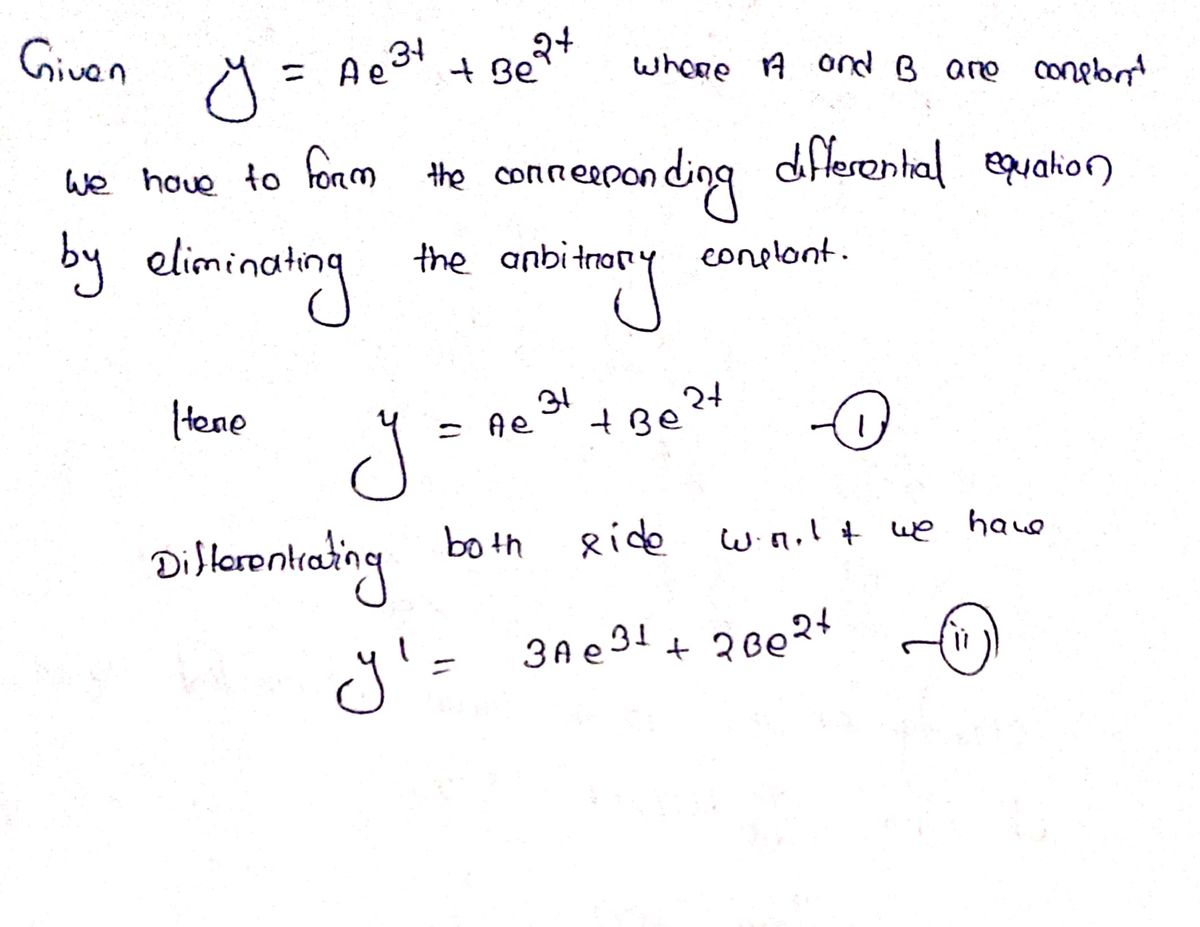 Given y = Ae^{3t} + Be^{2t} where A and B are constant
we have to form the corresponding differential equation
by eliminating the arbitrary constant.
Here y = Ae^{3t} + Be^{2t} -(i)
Differentiating both side w.r.t t we have
y' = 3Ae^{3t} + 2Be^{2t} -(ii)